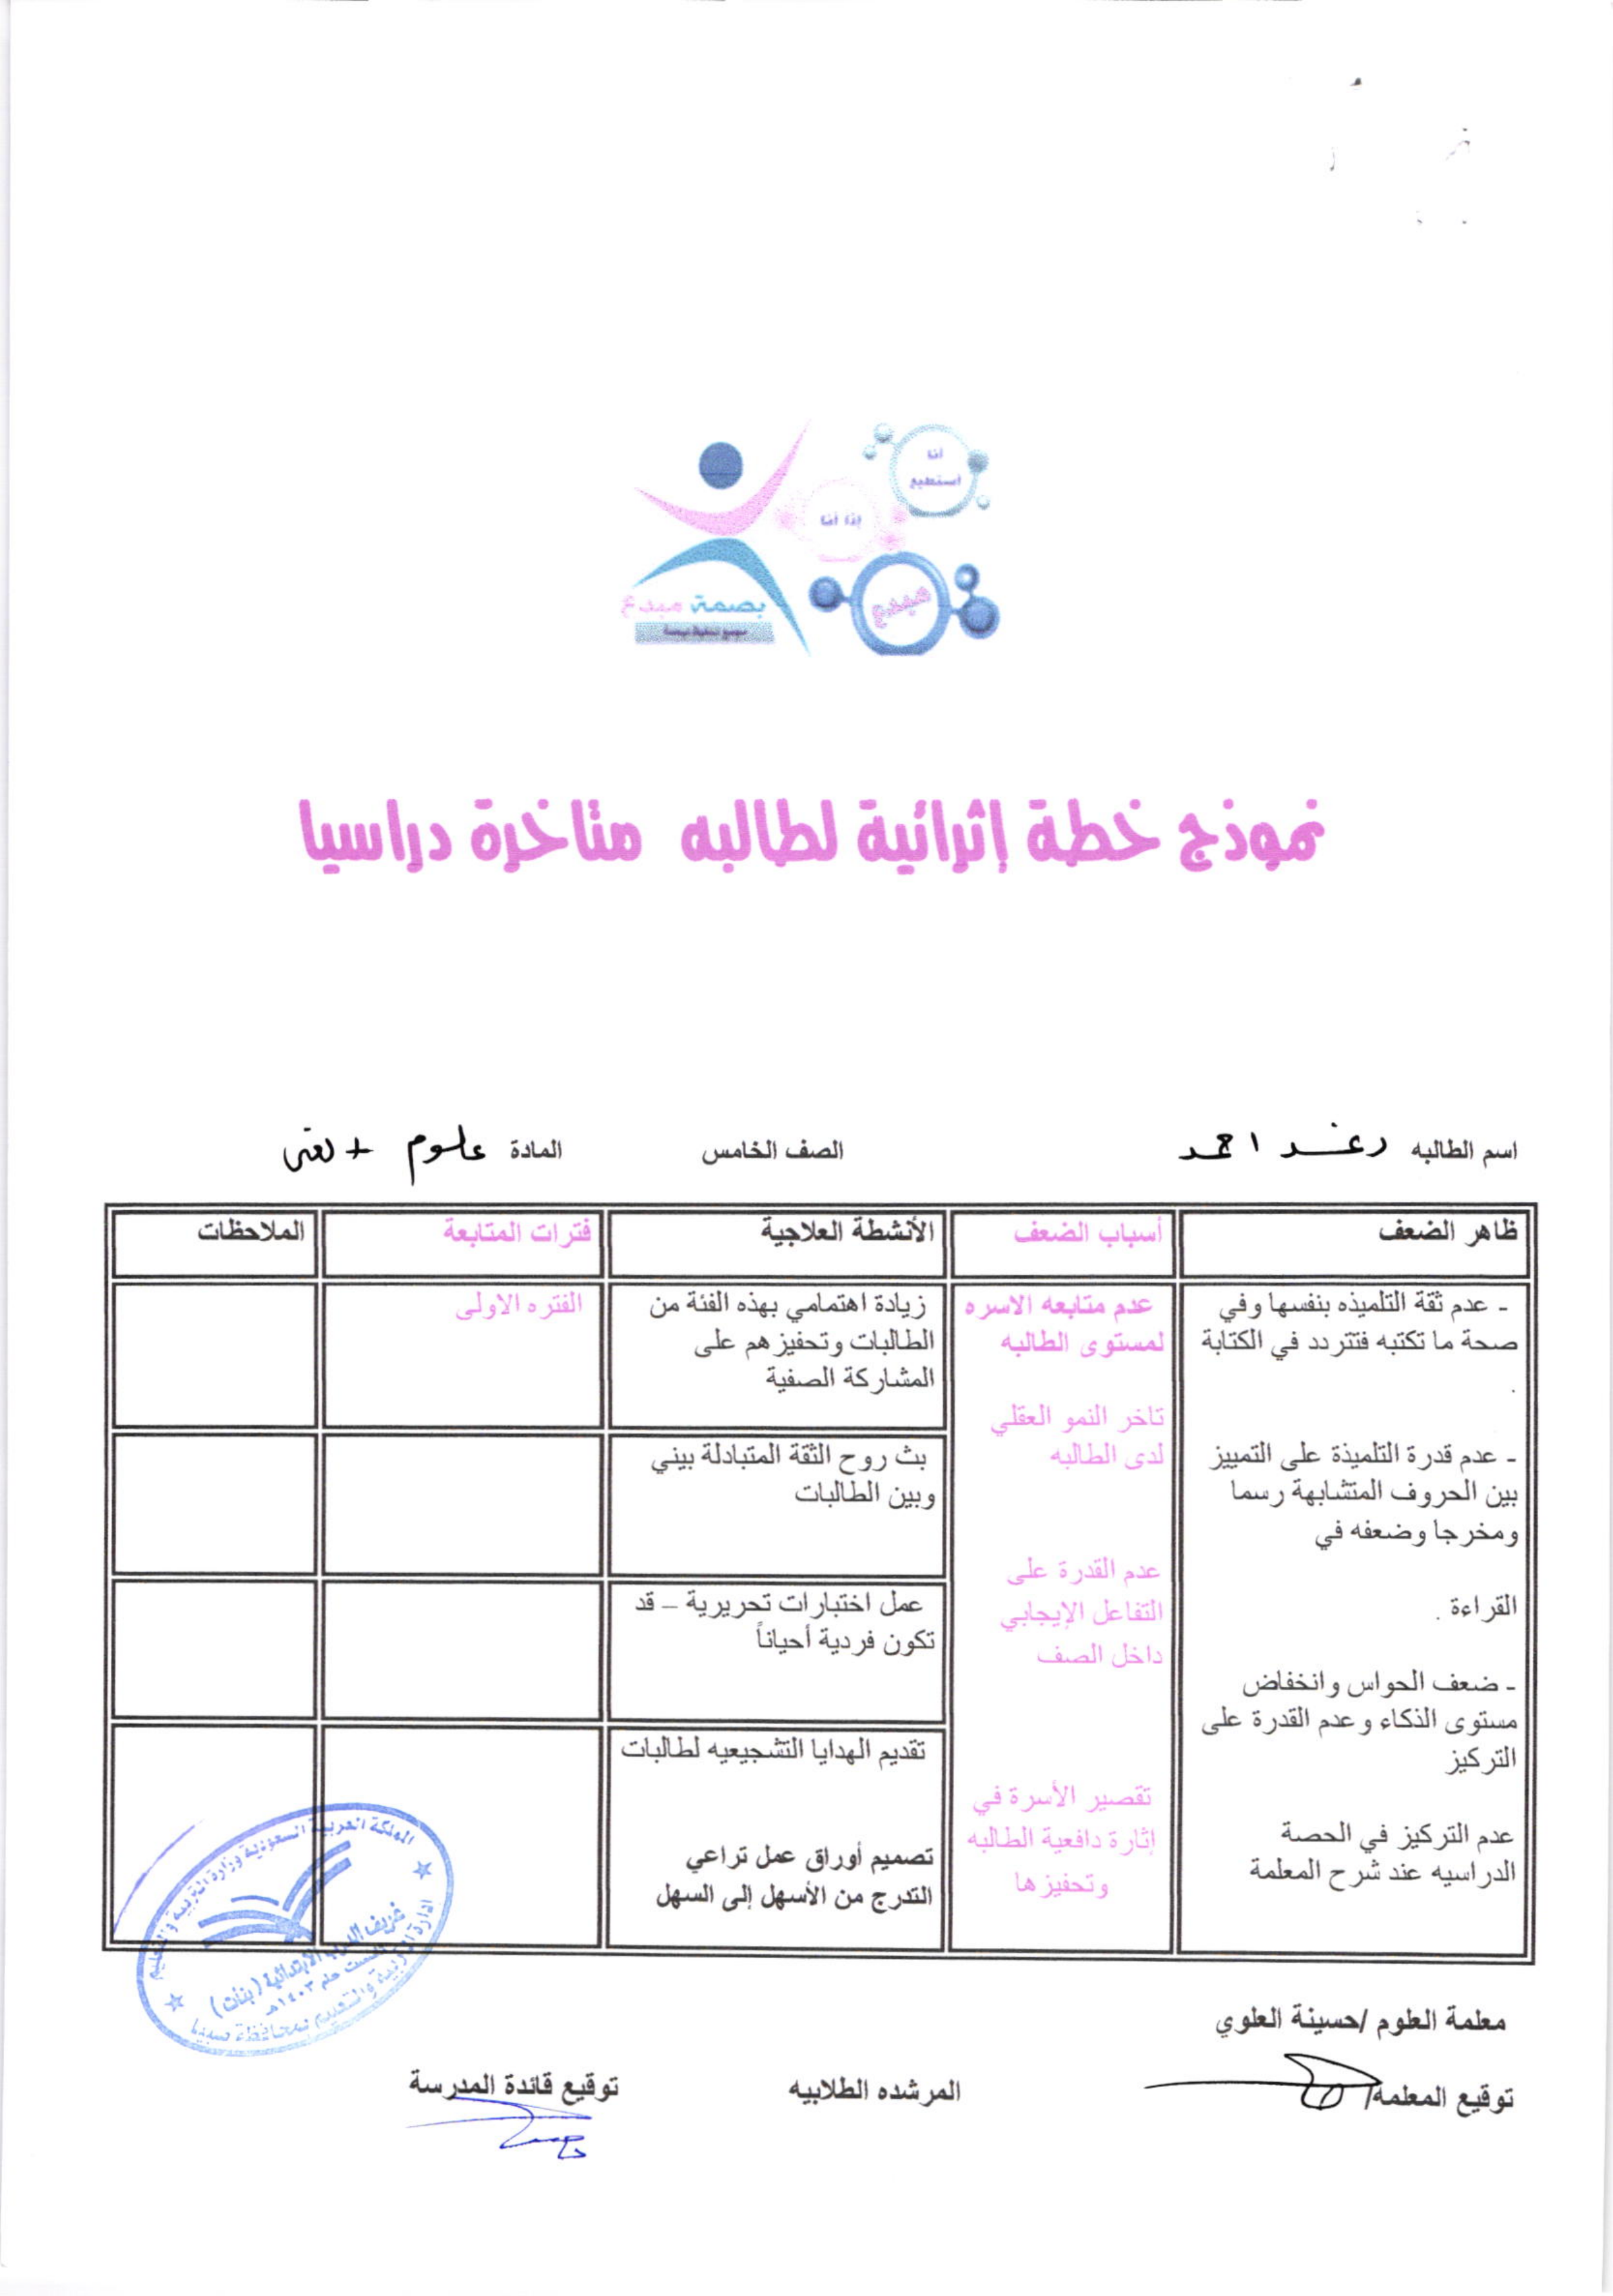 أنا
أستطيع
إذا أنا
مبدع
بصمة مبدع
نموذج خطة إثرائية لطالبه متاخرة دراسيا
اسم الطالبه رغد احمد الصف الخامس المادة علوم +
ظاهر الضعف أسباب الضعف الأنشطة العلاجية فترات المتابعة الملاحظات
- عدم ثقة التلميذه بنفسها وفي
صحة ما تكتبه فتتردد في الكتابة
.
- عدم قدرة التلميذة على التمييز
بين الحروف المتشابهة رسما
ومخرجا وضعفه في
القراءة .
- ضعف الحواس وانخفاض
مستوى الذكاء وعدم القدرة على
التركيز
عدم التركيز في الحصة
الدراسيه عند شرح المعلمة
عدم متابعه الاسره
لمستوى الطالبه
تاخر النمو العقلي
لدى الطالبه
عدم القدرة على
التفاعل الإيجابي
داخل الصف
تقصير الأسرة في
إثارة دافعية الطالبه
وتحفيزها
زيادة اهتمامي بهذه الفئة من
الطالبات وتحفيزهم على
المشاركة الصفية
الفتره الاولى
بث روح الثقة المتبادلة بيني
وبين الطالبات
عمل اختبارات تحريرية – قد
تكون فردية أحياناً
تقديم الهدايا التشجيعيه لطالبات
تصميم أوراق عمل تراعي
التدرج من الأسهل إلى السهل
المملكة العربية السعودية وزارة التربية والتعليم
الابتدائية (بنات)
عام ١٤٠٣هـ
إدارة التربية والتعليم بمحافظة صبيا
معلمة العلوم /حسينة العلوي
توقيع المعلمة/ المرشده الطلابيه توقيع قائدة المدرسة